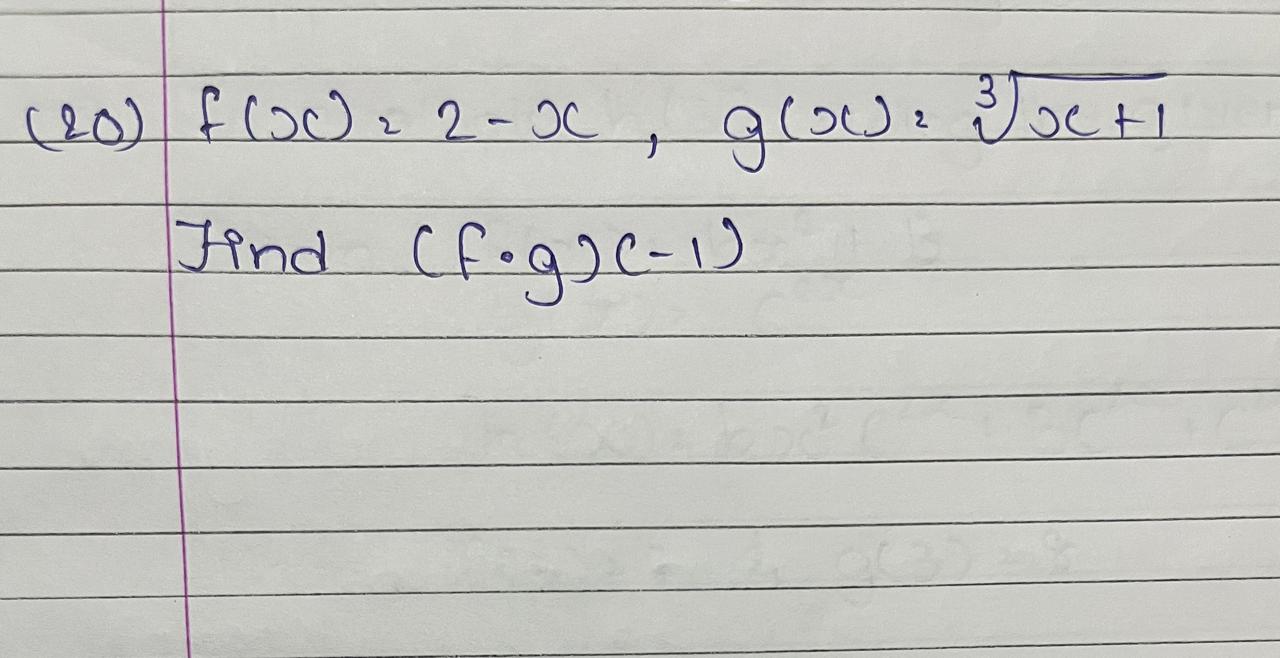 (20) f(x) = 2 - x , g(x) = ∛(x+1)
Find (f·g)(-1)